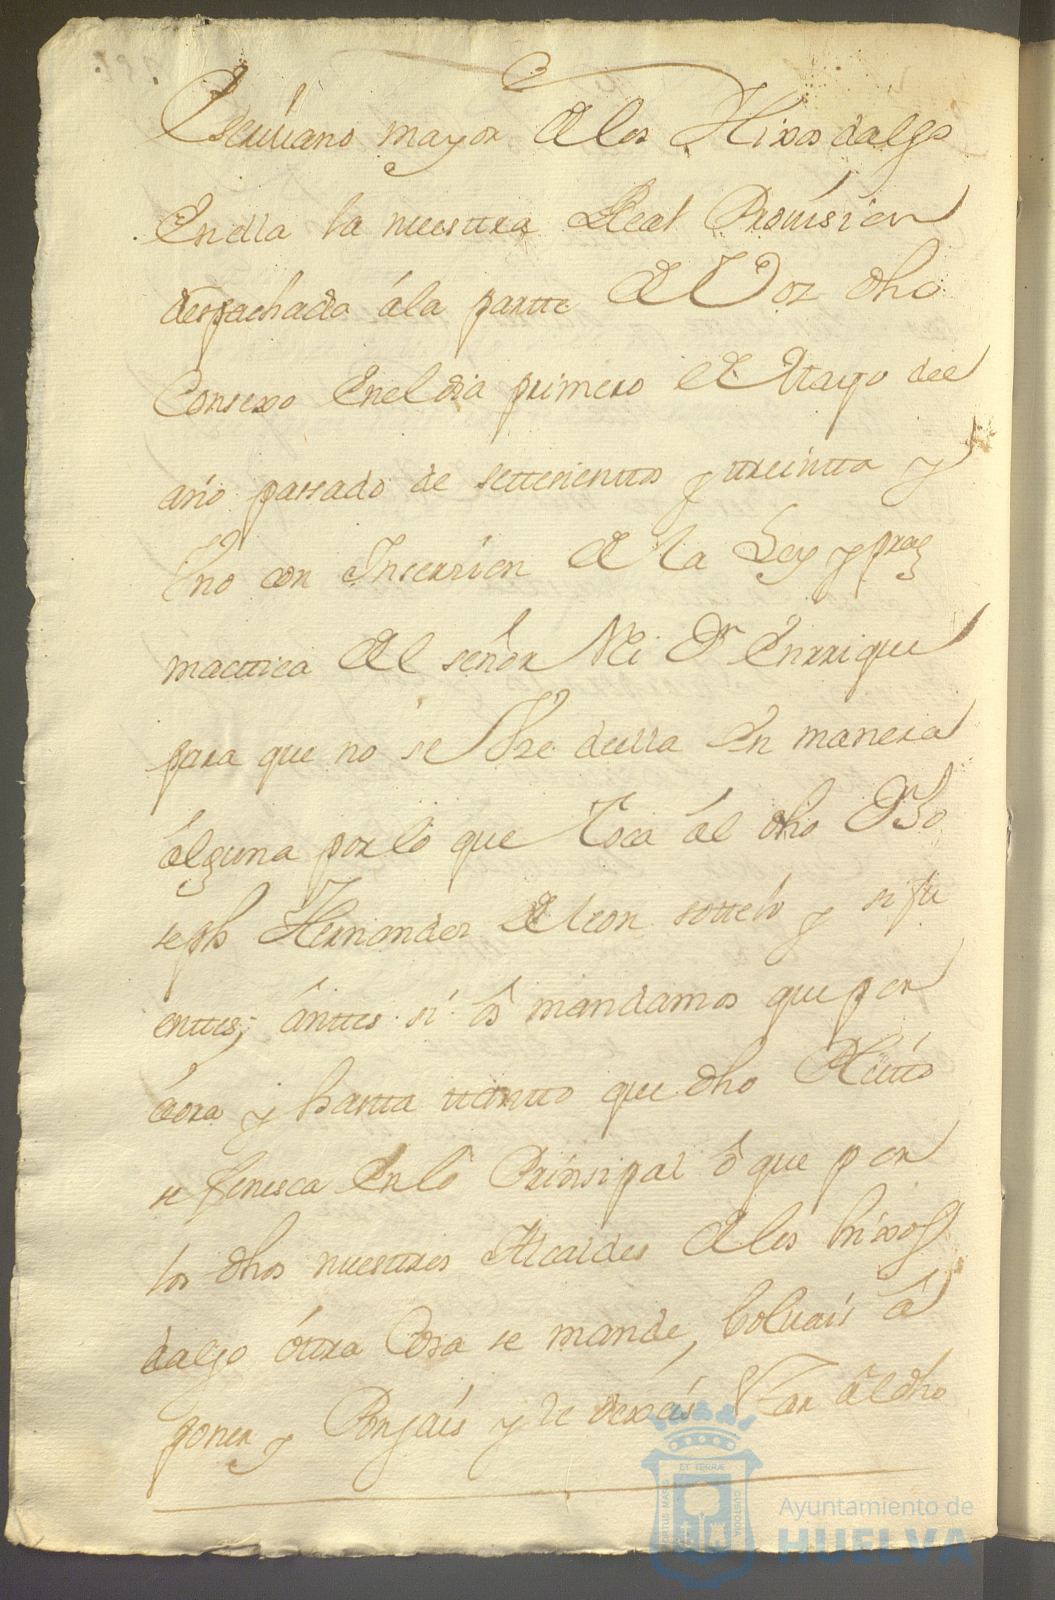 Escriuano mayor de los Hixos dalgo
En ella la nuestra Real Prouision
despachada á la partte de Vos dho
Consexo En el dia primero de Mayo del
año passado de settesientos y ttreintta y
Vno con Inserzion de la Ley y prag
mattica del señor Rei Dn Enrrique
para que no se Vse della En manera
álguna por lo que Toca ál dho Dn Jo
seph Hernandez de leon sottelo y si fu
enttes, ánttes si ôs mandamos que por
áora y hasta ttantto que dho Pleitto
se fenesca En lo Prinsipal ô que por
los dhos nuestros Alcaldes de los hixos
dalgo óttra Cosa se mande, boluais â
poner y Pongais y le dexeis Vsar âl dho
ET TERRÆ
PORTUS MARIS
CUSTODIA
Ayuntamiento de
HUELVA